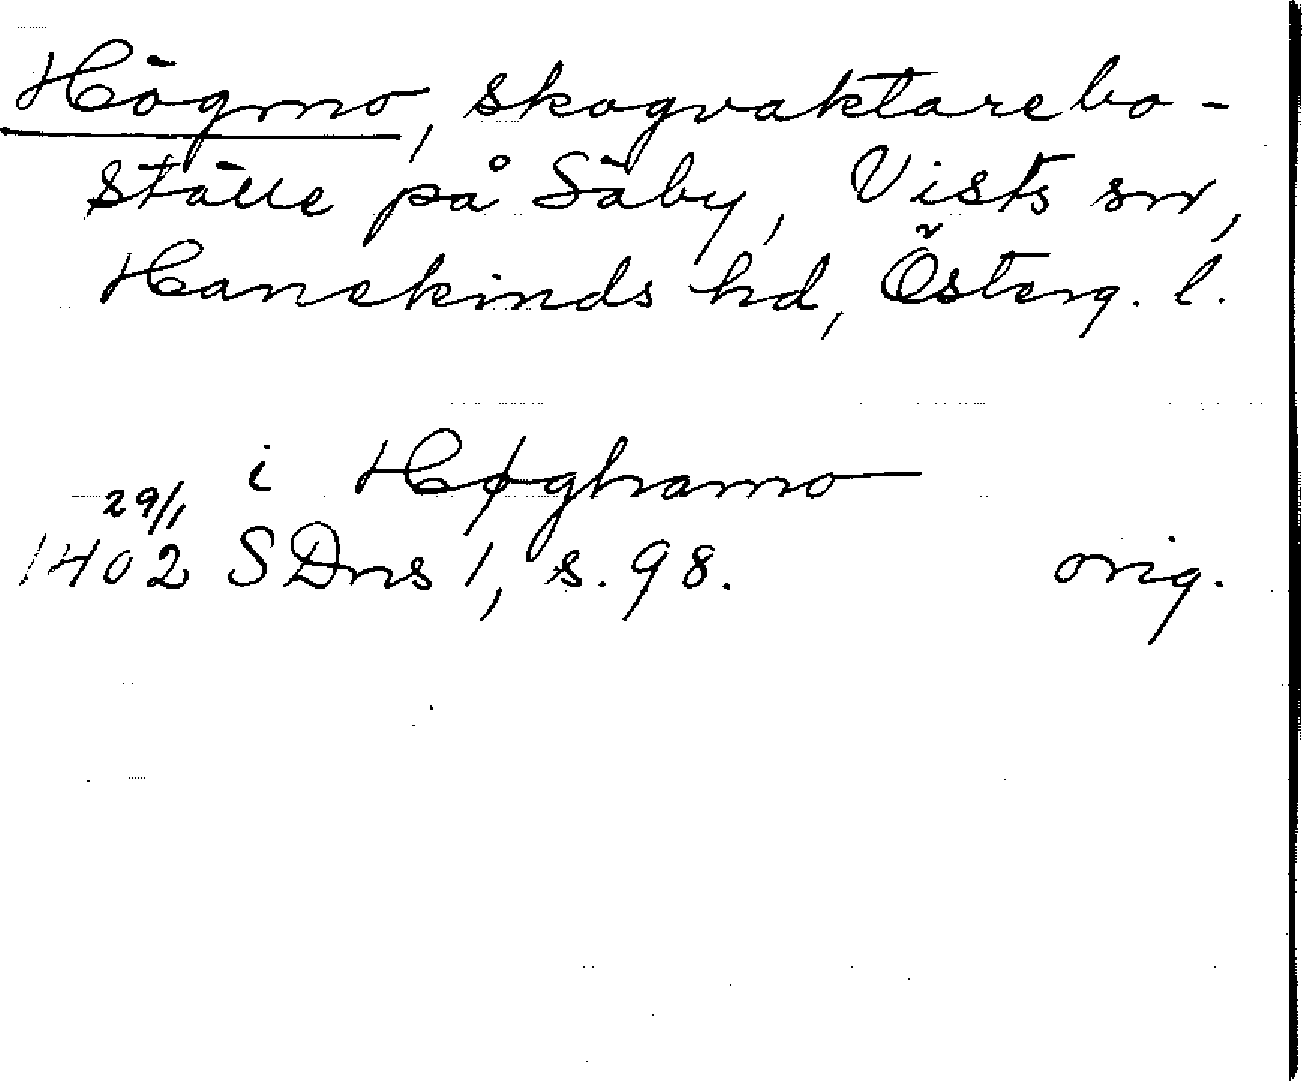 Högmo, skogvaktarebo-
ställe på Säby, Vists sn,
Hanekinds hd, Österg. l.
i Høghamo
29/1
1402 SDns 1, s. 98. orig.